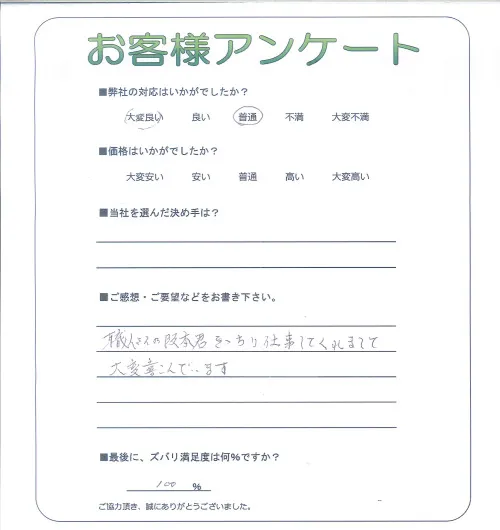 お客様アンケート
■弊社の対応はいかがでしたか？
大変良い 良い 普通 不満 大変不満
■価格はいかがでしたか？
大変安い 安い 普通 高い 大変高い
■当社を選んだ決め手は？
■ご感想・ご要望などをお書き下さい。
職人さんの阪本君きっちり仕事してくれまして
大変喜んでいます
■最後に、ズバリ満足度は何％ですか？
100 ％
ご協力頂き、誠にありがとうございました。